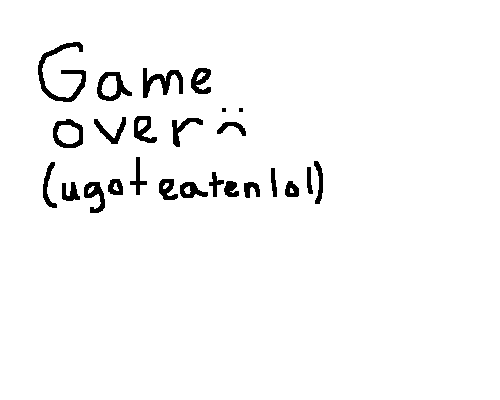 Game
over :(
(u got eaten lol)